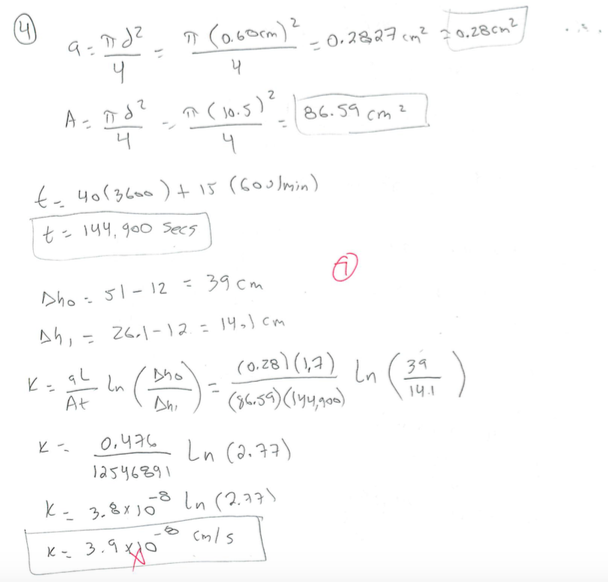 ④
a = πd²/4 = π(0.60cm)²/4 = 0.2827 cm² ≈ 0.28cm²
A = πd²/4 = π(10.5)²/4 = 86.59 cm²
t = 40(3600) + 15(60s/min)
t = 144,900 secs
Δh₀ = 51 - 12 = 39 cm
Δh₁ = 26.1 - 12 = 14.1 cm
K = aL/At ln(Δh₀/Δh₁) = (0.28)(1.7)/(86.59)(144,900) ln(39/14.1)
K = 0.476/12546891 ln(2.77)
K = 3.8x10⁻⁸ ln(2.77)
K = 3.9x10⁻⁸ cm/s